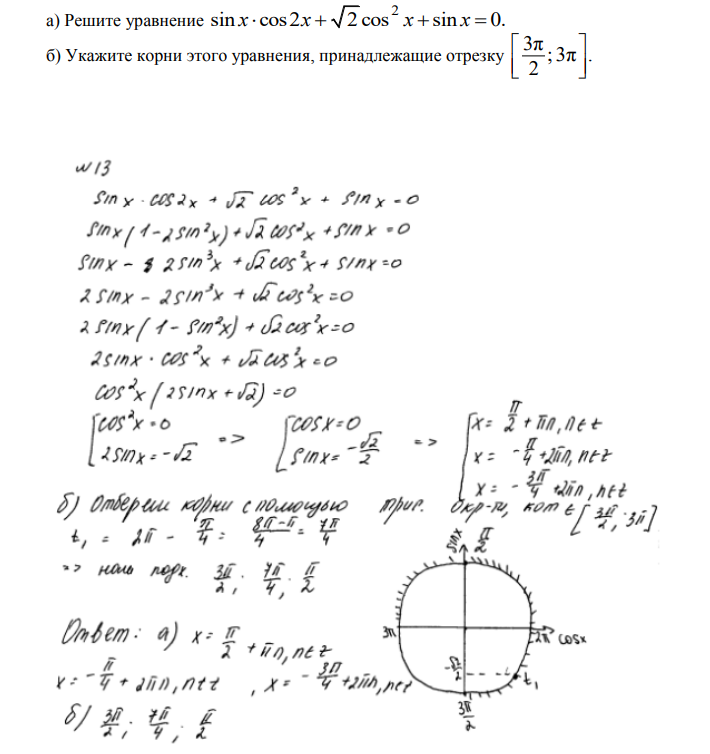 а) Решите уравнение sin x · cos 2x + √2 cos² x + sin x = 0.
б) Укажите корни этого уравнения, принадлежащие отрезку [3π/2; 3π].
№13
sin x · cos 2x + √2 cos² x + sin x = 0
sin x (1 - 2 sin² x) + √2 cos² x + sin x = 0
sin x - 2 sin³ x + √2 cos² x + sin x = 0
2 sin x - 2 sin³ x + √2 cos² x = 0
2 sin x (1 - sin² x) + √2 cos² x = 0
2 sin x · cos² x + √2 cos² x = 0
cos² x (2 sin x + √2) = 0
[cos² x = 0 => [cos x = 0 => [x = π/2 + πn, n∈z
2 sin x = -√2 sin x = -√2/2 x = -π/4 + 2πn, n∈z
x = -3π/4 + 2πn, n∈z
б) Отберем корни с помощью триг. окр-ти, кот ∈ [3π/2; 3π]
t₁ = 2π - π/4 = (8π-π)/4 = 7π/4
=> нам подх. 3π/2; 7π/4; π/2
sin x
π/2
3π
2π cos x
-√2/2
t₁
3π/2
Ответ: а) x = π/2 + πn, n∈z
x = -π/4 + 2πn, n∈z, x = -3π/4 + 2πn, n∈z
б) 3π/2; 7π/4; π/2